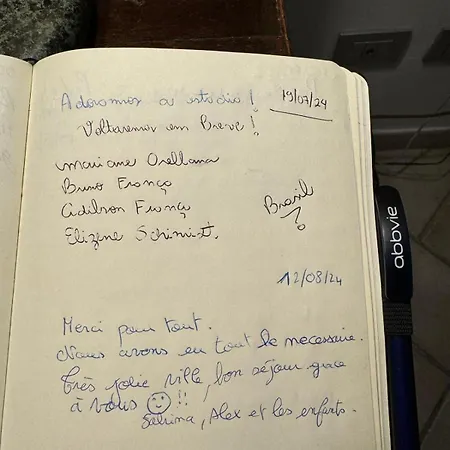 Adoramos a estadia!
19/07/24
Voltaremos em Breve!
Mariane Orellana
Bruno França
Cidilson França
Elizene Schimidt.
Brasil
12/08/24
Merci pour tout.
Nous avons eu tout le necessaire.
Très jolie ville, bon séjour grace
à vous !!
Sabrina, Alex et les enfants.
abbvie